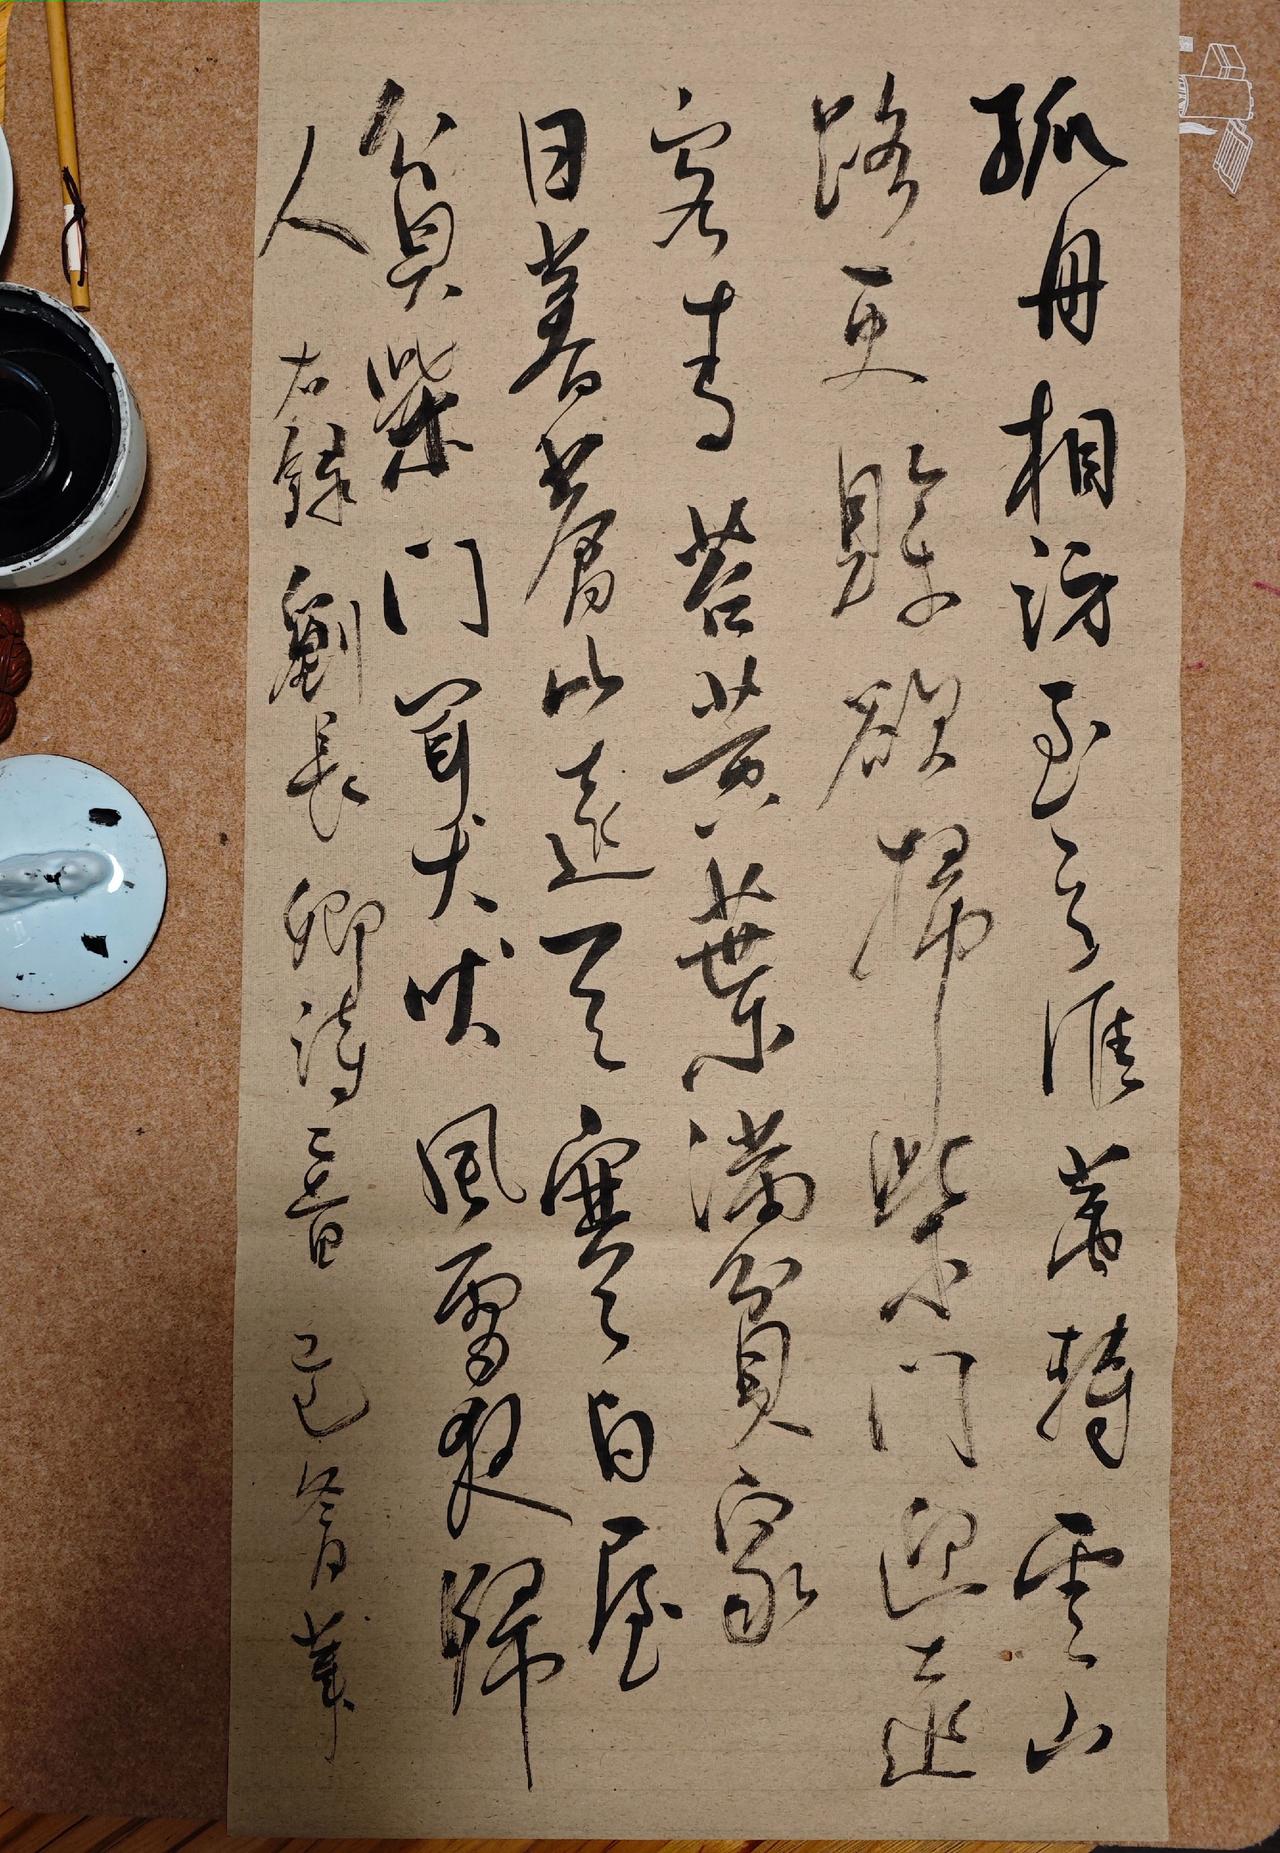 孤舟相訪至天涯萬轉雲山
路更賖欲掃柴门迎遠
客青苔黄葉滿貧家
日暮蒼山遠天寒白屋
貧柴门闻犬吠風雪夜歸
人 右録劉長卿詩二首 乙巳冬月